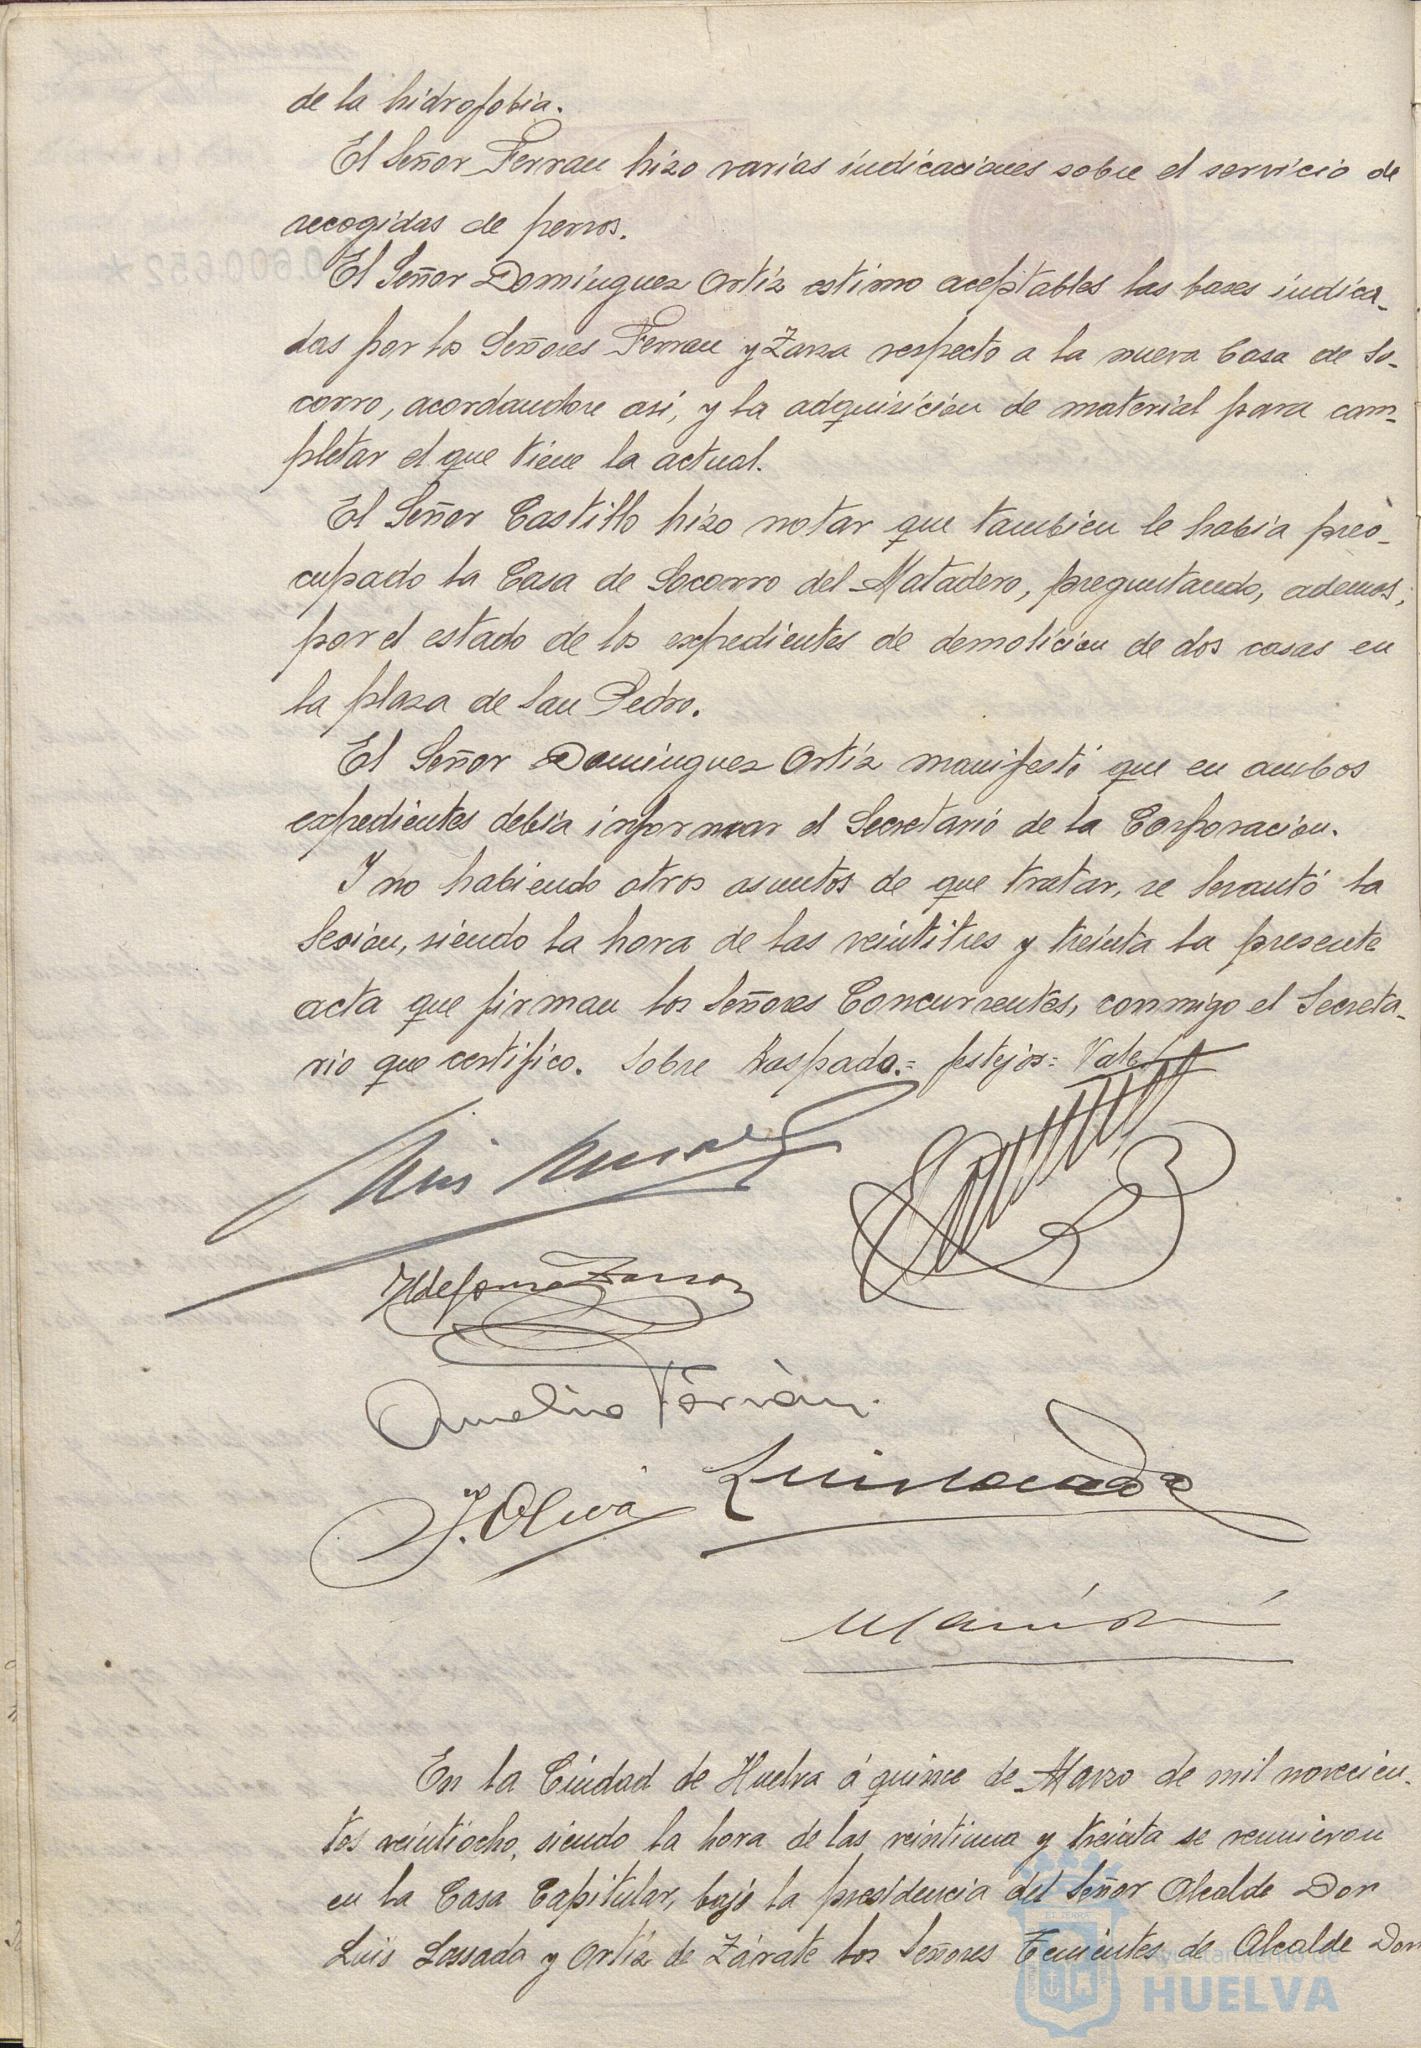 de la hidrofobia.
El Señor Ferrau hizo varias indicaciones sobre el servicio de
recogidas de perros.
El Señor Dominguez Ortíz estimo aceptables las bases indica-
das por los Señores Ferrau y Zarza respecto a la nueva Casa de So-
corro, acordandose asi, y la adquisición de material para com-
pletar el que tiene la actual.
El Señor Castillo hizo notar que tambien le había preo-
cupado la Casa de Socorro del Matadero, preguntando, ademas,
por el estado de los expedientes de demolición de dos casas en
la plaza de San Pedro.
El Señor Dominguez Ortíz manifestó que en ambos
expedientes debía informar el Secretario de la Corporación.
Y no habiendo otros asuntos de que tratar, se levantó la
Sesion, siendo la hora de las veintitres y treinta la presente
acta que firman los Señores Concurrentes, conmigo el Secreta-
rio que certifico. Sobre Raspado.= festejos= Vale
Ildefonso Zarza
Aurelio Ferrán
J. Oliva
En la Ciudad de Huelva á quince de Marzo de mil novecien-
tos veintiocho, siendo la hora de las veintiuna y treinta se reunieron
en la Casa Capitular, bajo la presidencia del Señor Alcalde Don
Luis Lossada y Ortíz de Zárate los Señores Tenientes de Alcalde Don
Ayuntamiento de
HUELVA